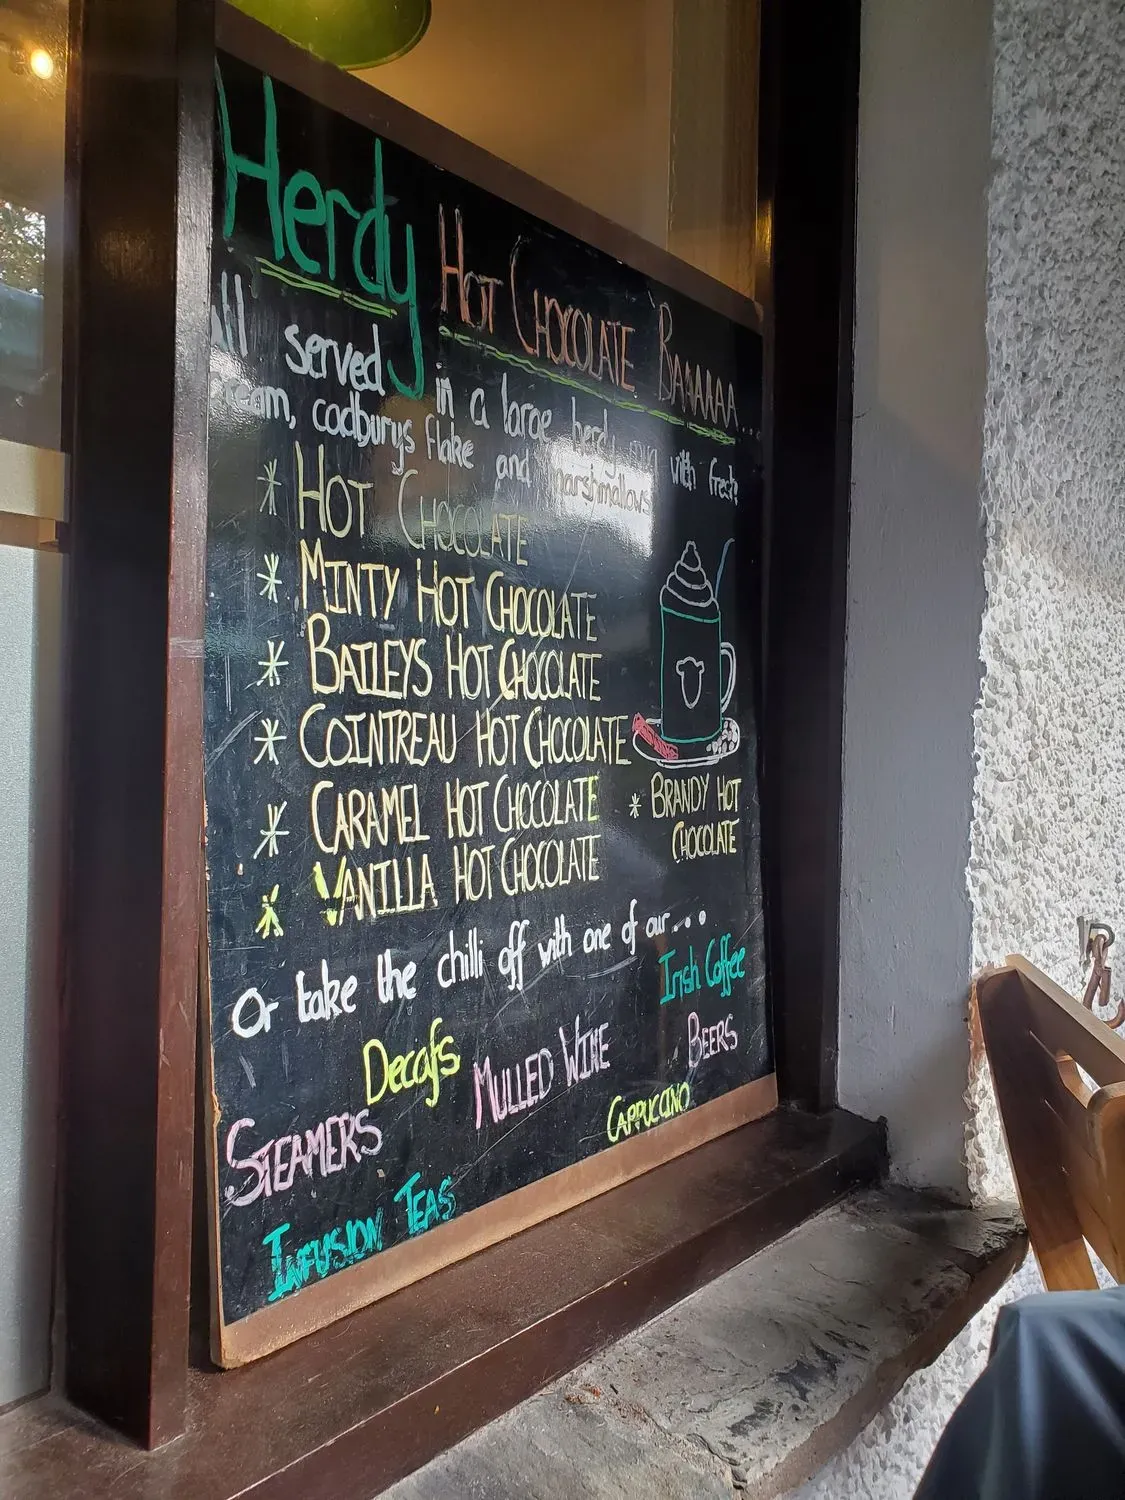 Herdy HOT CHOCOLATE BAAAAAA...
All served in a large herdy mug with fresh
cream, cadburys flake and marshmallows
* HOT CHOCOLATE
* MINTY HOT CHOCOLATE
* BAILEYS HOT CHOCOLATE
* COINTREAU HOT CHOCOLATE
* CARAMEL HOT CHOCOLATE
* BRANDY HOT
CHOCOLATE
* VANILLA HOT CHOCOLATE
Or take the chilli off with one of our...
Irish Coffee
Decafs MULLED WINE BEERS
STEAMERS CAPPUCCINO
INFUSION TEAS